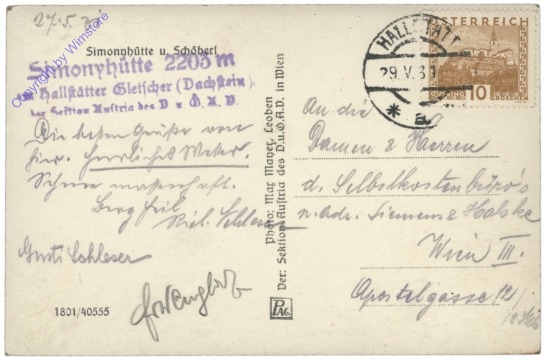 27.5.31
Simonyhütte u. Schöberl
Simonyhütte 2203 m
Hallstätter Gletscher (Dachstein)
der Sektion Austria des D. u. Ö. A. V.
Die besten Grüße von
hier. Herrliches Wetter.
Schnee massenhaft.
Berg Heil
Gusti Schleser
1801/40555
Photo: Max Mayer, Leoben
Der: Sektion Austria des D.u.Ö.A.V. in Wien
PAG
HALLSTATT
29.V.31
* a
ÖSTERREICH
10 GROSCHEN
An die
Damen & Herren
d. Selbstkostenbüro's
Siemens & Halske
Wien III.
Apostelgasse 12
Copyright by Wimstore